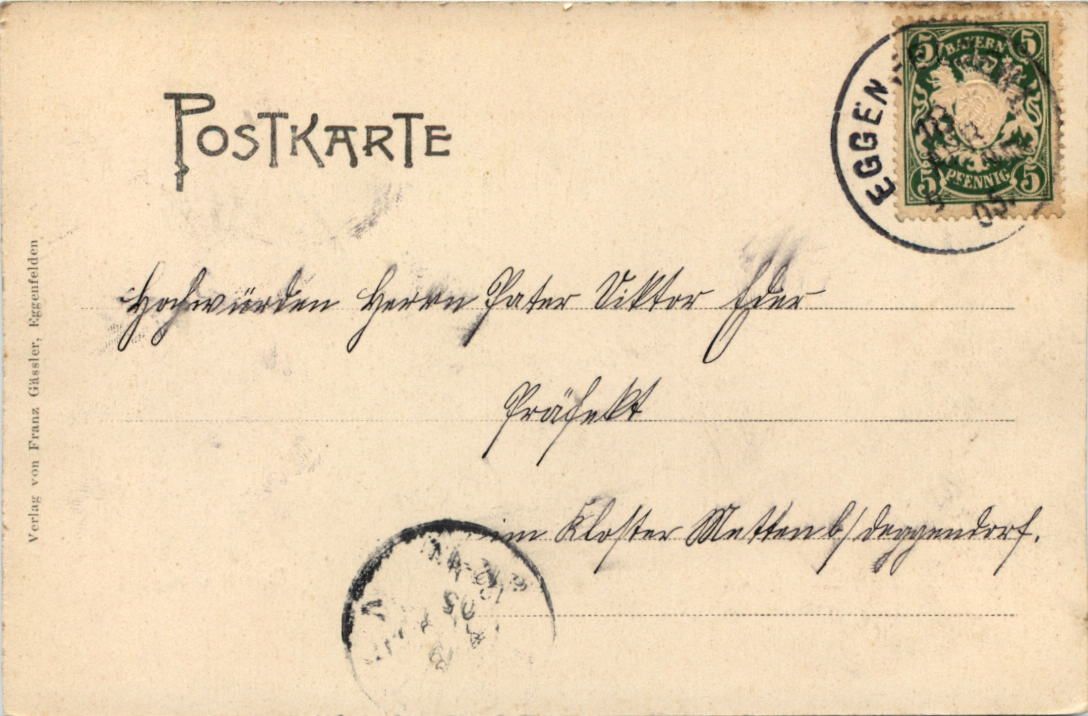 POSTKARTE
5 BAYERN 5
5 PFENNIG 5
EGGEN
05
Verlag von Franz Gässler, Eggenfelden
Hochwürden Herrn Pater Viktor Eder
Präfekt
im Kloster Metten b/Deggendorf.
05